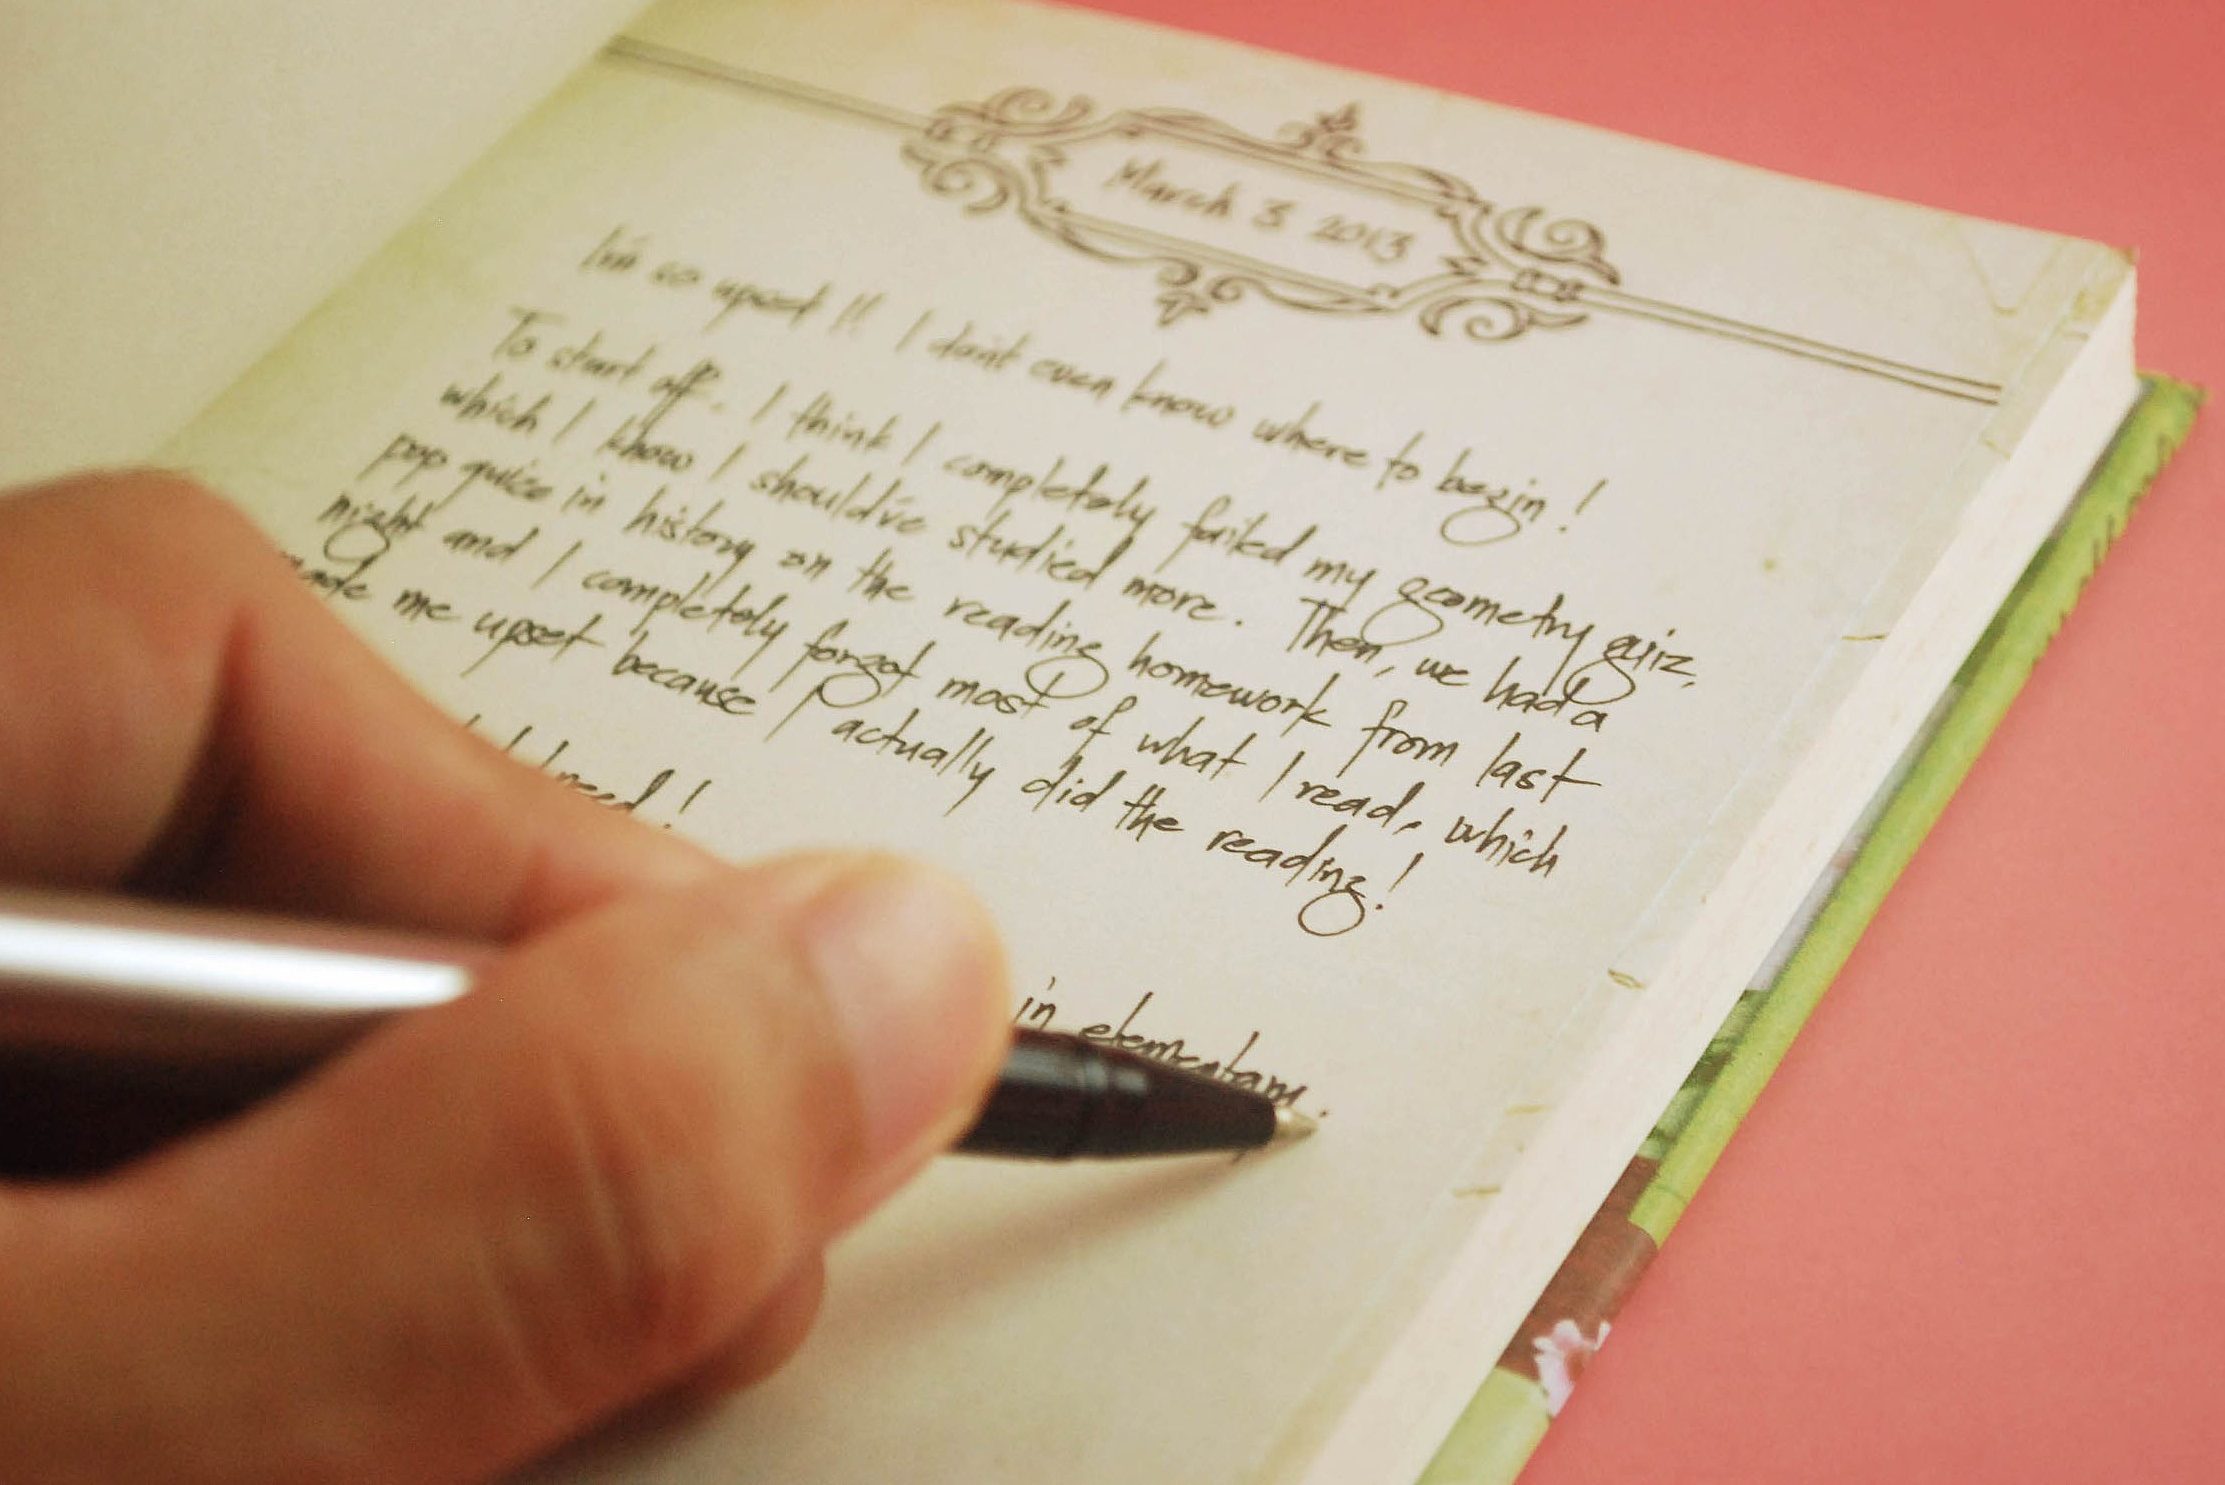 March 3 2013
I'm so upset!! I don't even know where to begin!
To start off, I think I completely failed my geometry quiz,
which I know I should've studied more. Then, we had a
pop quize in history on the reading homework from last
night and I completely forgot most of what I read, which
made me upset because I actually did the reading!
in elementary.